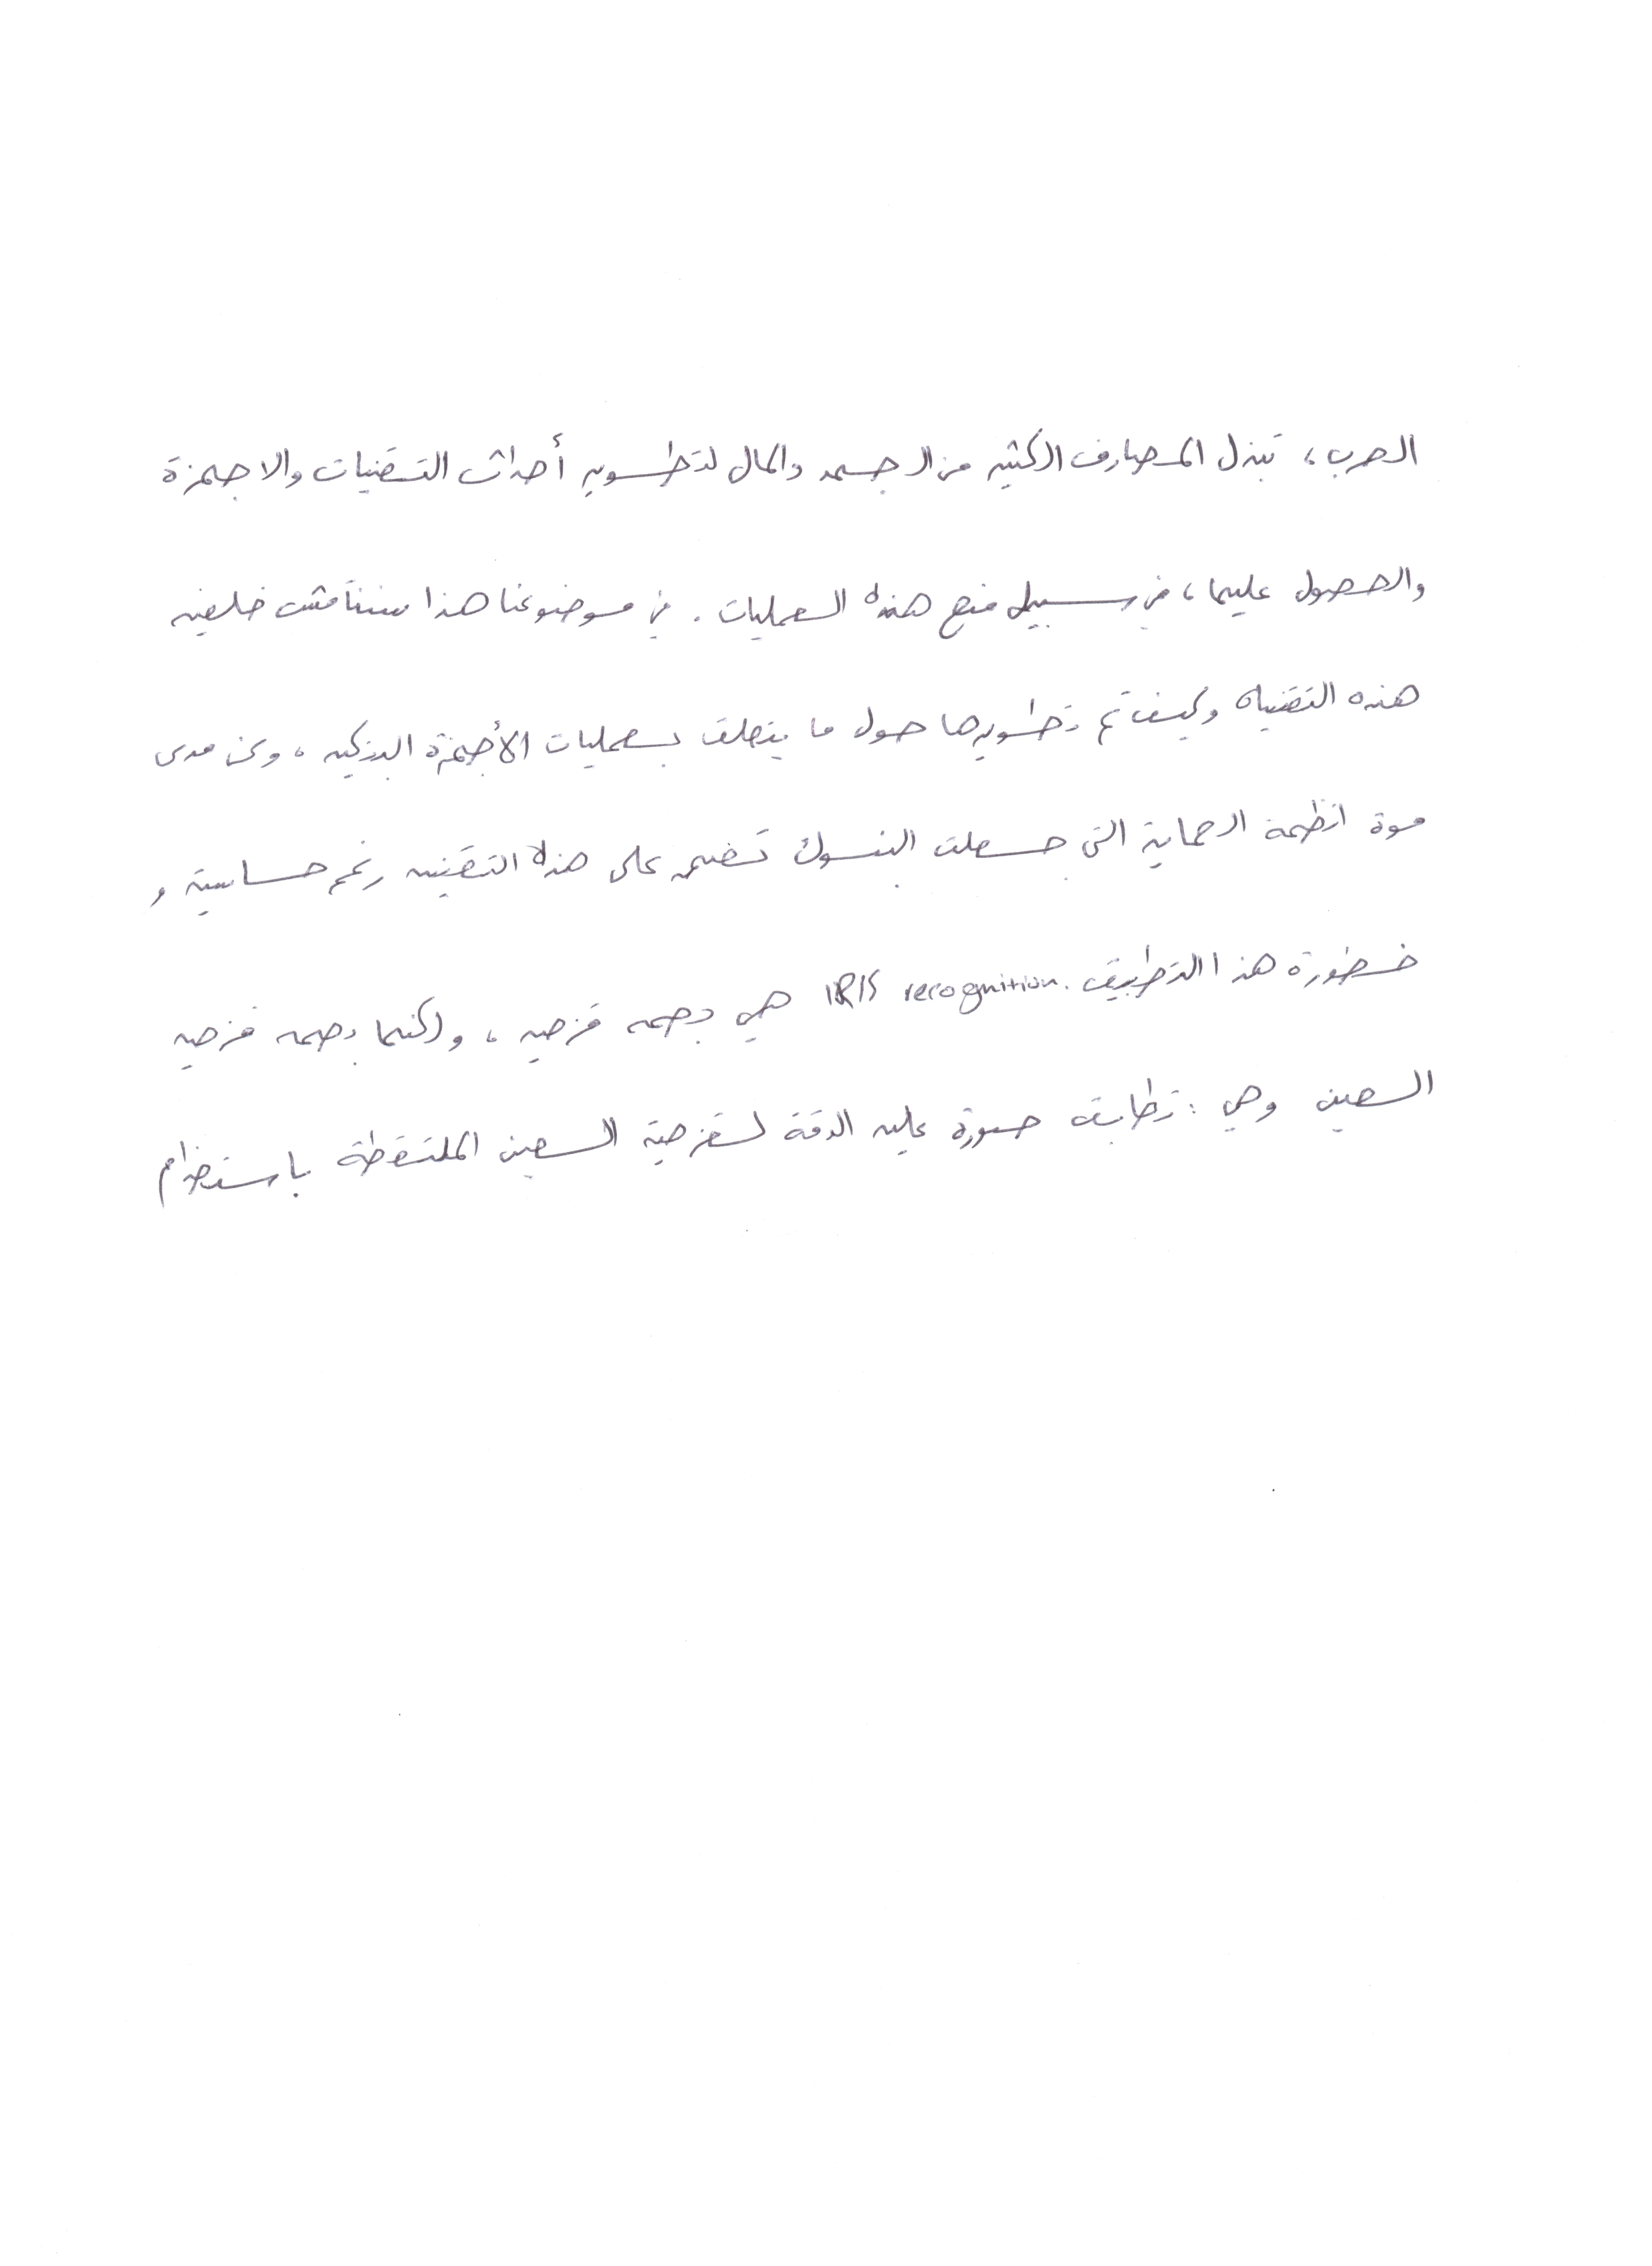 الحرب، تبذل المصارف الكثير من الجهد والمال لتطوير أحداث التقنيات والاجهزة
والحصول عليها، في سبيل منع هذه العمليات. في موضوعنا هذا سنناقش خلفية
هذه التقنيات وكيف تم تطويرها حول ما يتعلق بعمليات الأجهزة البنكيه، وعن مدى
قوة انظمة الحماية التي جعلت البنوك تعتمد على هذه التقنيه رغم حساسية و
خطورة هذا التطبيق. IRIS recognition هي بصمه قزحيه، ولكنها بصمه قزحيه
العين وهي: تطابق صورة عاليه الدقة لقزحية العين الملتقطة باستخدام